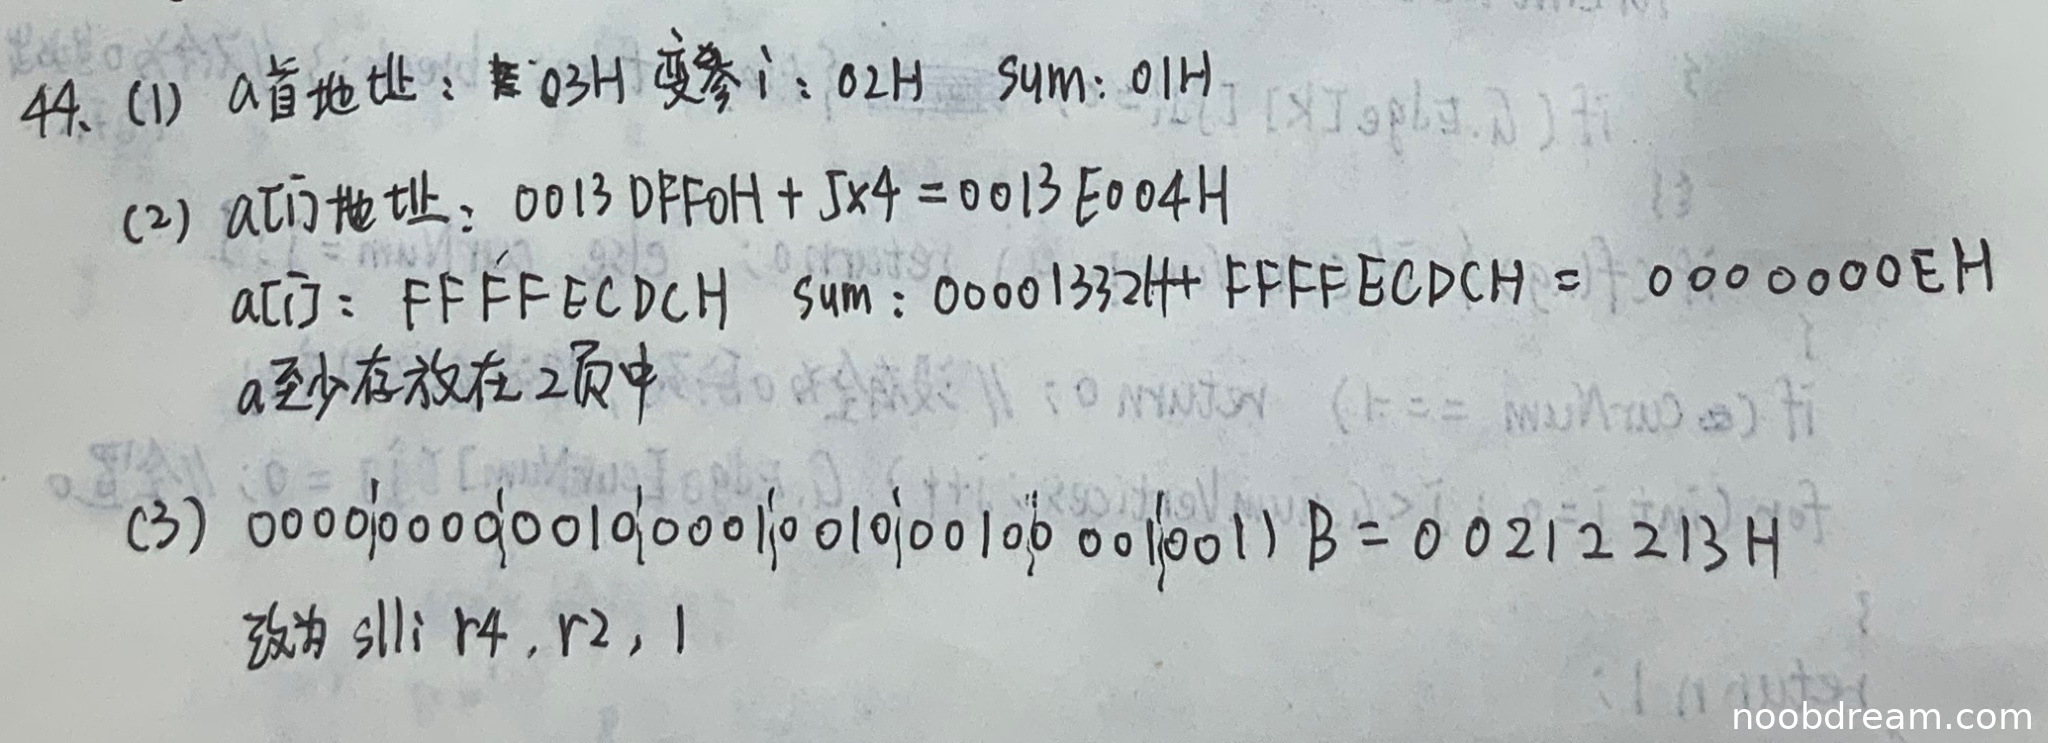 44. (1) a首地址: 03H 变参i: 02H sum: 01H
(2) a[i]地址: 0013DFF0H + 5×4 = 0013E004H
a[i]: FFFFECDCH sum: 00001332H + FFFFECDCH = 0000000EH
a至少存放在2页中
(3) 0000 0000 0010 0001 0010 0010 0001 0011 B = 00212213H
改为 slli r4, r2, 1
noobdream.com